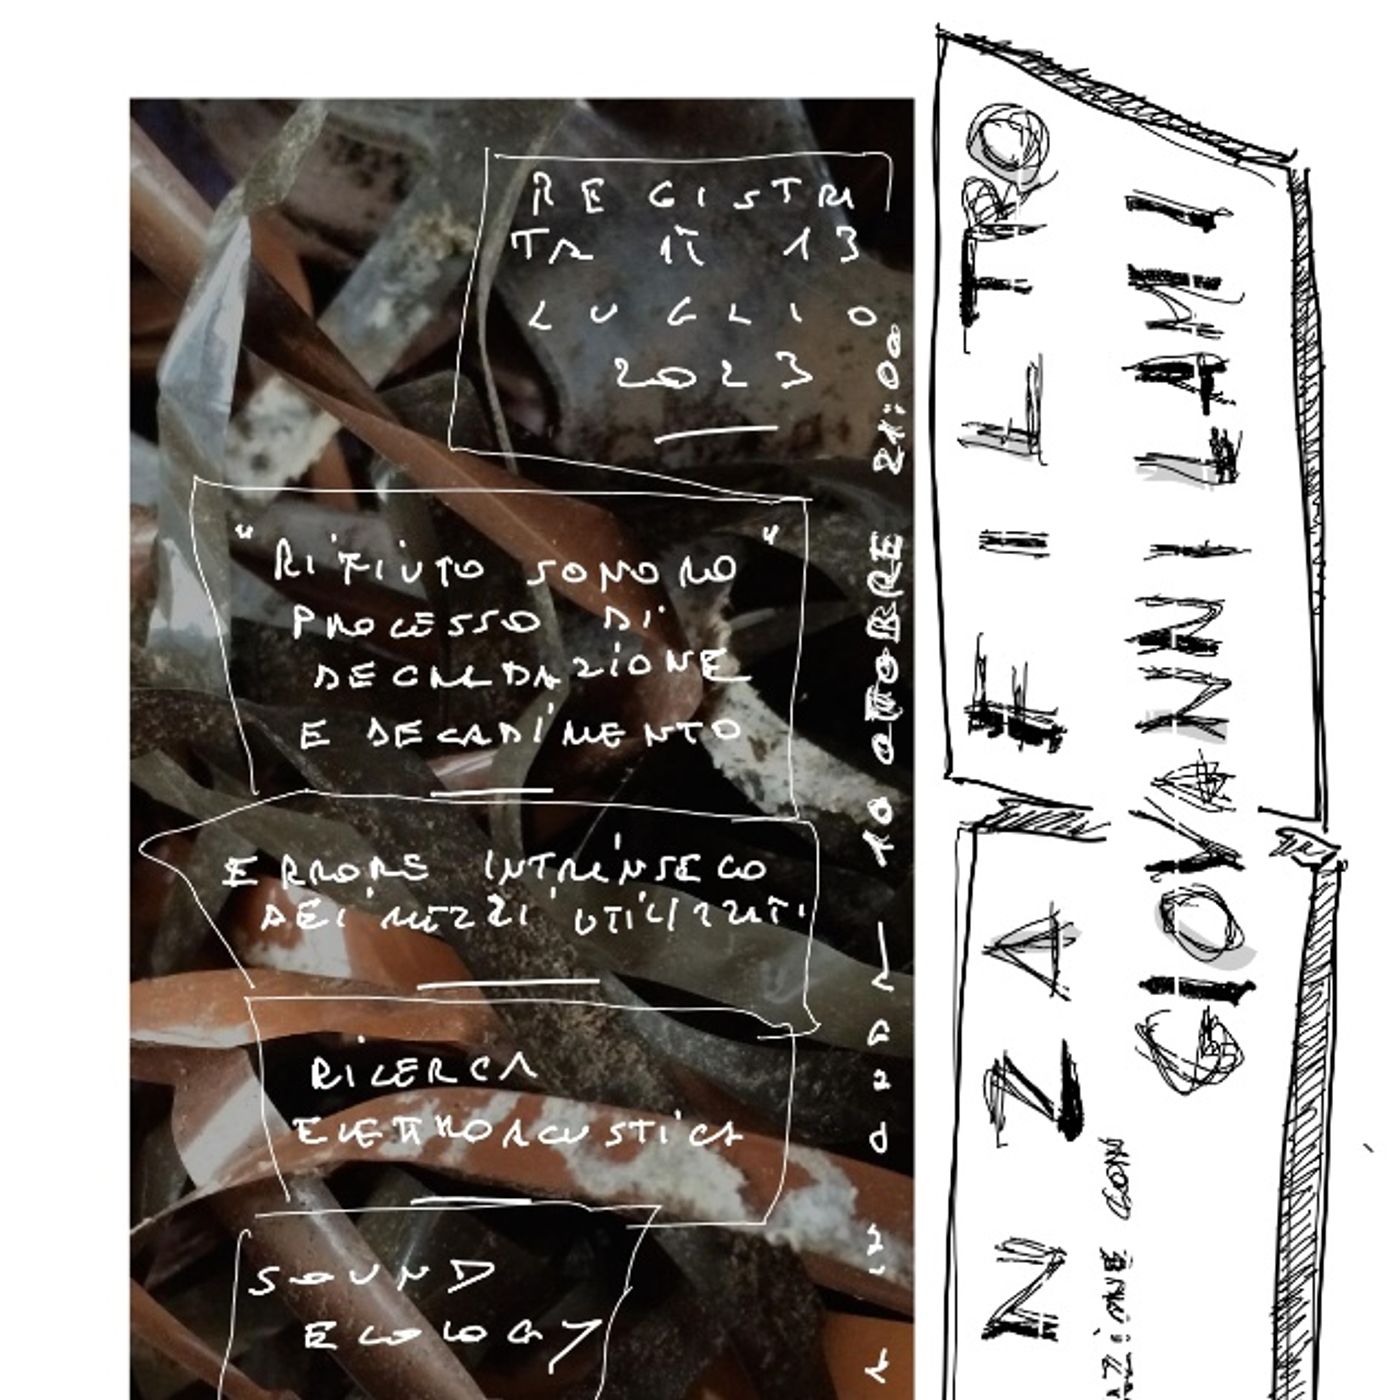 REGISTRA
TA IL 13
LUGLIO
2023
"RIFIUTO SONORO"
PROCESSO DI
DEGRADAZIONE
E DECADIMENTO
ERRORE INTRINSECO
DEI MEZZI UTILIZZATI
RICERCA
ELETTROACUSTICA
SOUND
ECOLOGY
10 OTTOBRE 21:00
FILTRO
GIOVANNI LAMI
NZA
CON